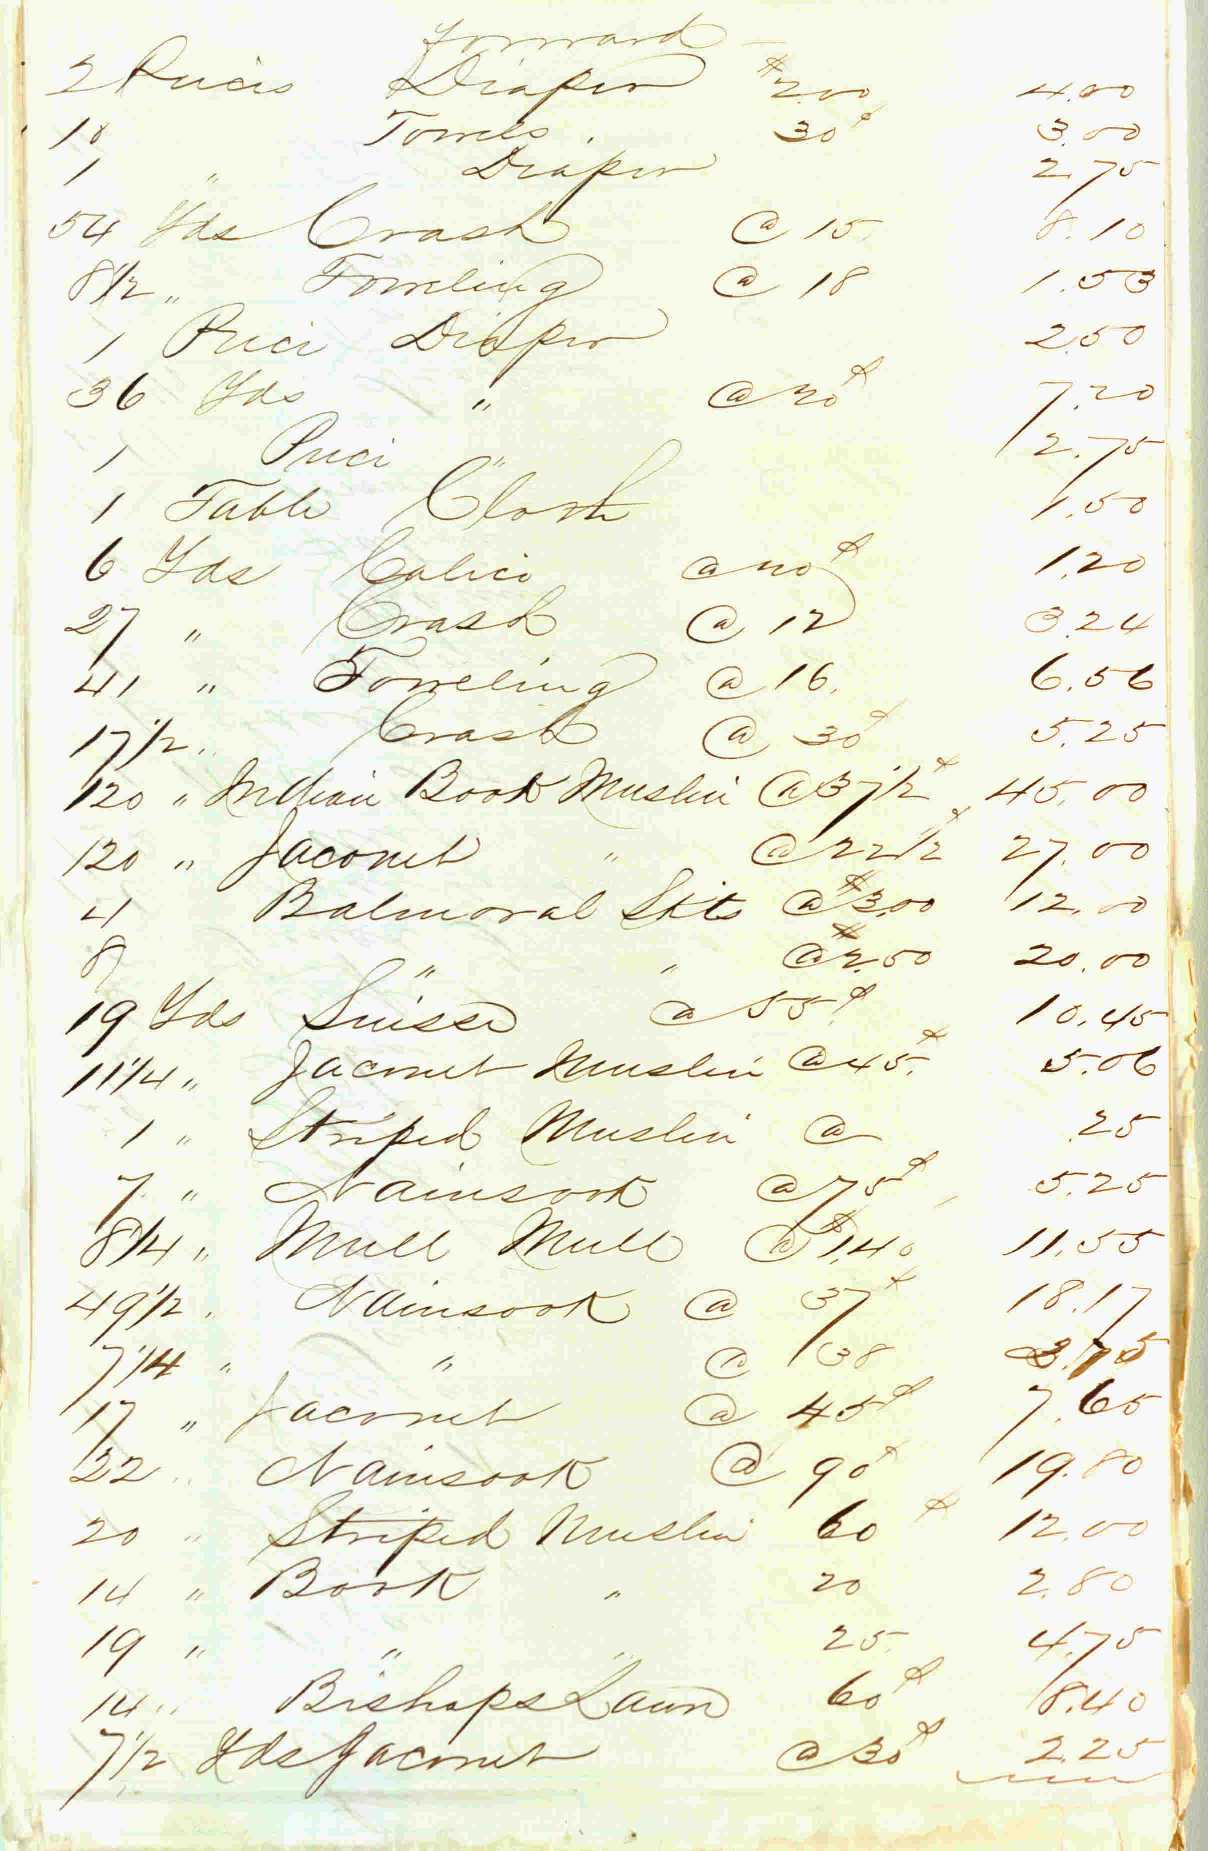 Forward
2 Pieces Diaper $2.00 4.00
10 Towels. 30¢ 3.00
1 " Diaper 2.75
54 Yds Crash @ 15. 8.10
8 1/2 " Toweling @ 18 1.53
1 Piece Diaper 2.50
36 Yds " @ 20¢ 7.20
1 Piece " 2.75
1 Table Cloth 1.50
6 Yds Calico @ 20¢ 1.20
27 " Crash @ 12 3.24
41 " Toweling @ 16. 6.56
17 1/2 " Crash @ 30¢ 5.25
120 " Indian Book Muslin @ 37 1/2¢ 45.00
120 " Jaconet " @ 22 1/2¢ 27.00
4 Balmoral Skts @ $3.00 12.00
8 " " @ $2.50 20.00
19 Yds Suisse @ 55¢ 10.45
11 1/4 " Jaconet Muslin @ 45¢ 5.06
1 " Striped Muslin @ .25
7 " Nainsook @ 75¢ 5.25
8 1/4 " Mull Mull @ $1.40 11.55
49 1/2 " Nainsook @ 37¢ 18.17
7 1/4 " " @ 38
17 " Jaconet @ 45¢ 7.65
22 " Nainsook @ 90¢ 19.80
20 " Striped Muslin 60¢ 12.00
14 " Book " 20 2.80
19 " " " 25. 4.75
14 " Bishops Lawn 60¢ 8.40
7 1/2 Yds Jaconet @ 30¢ 2.25